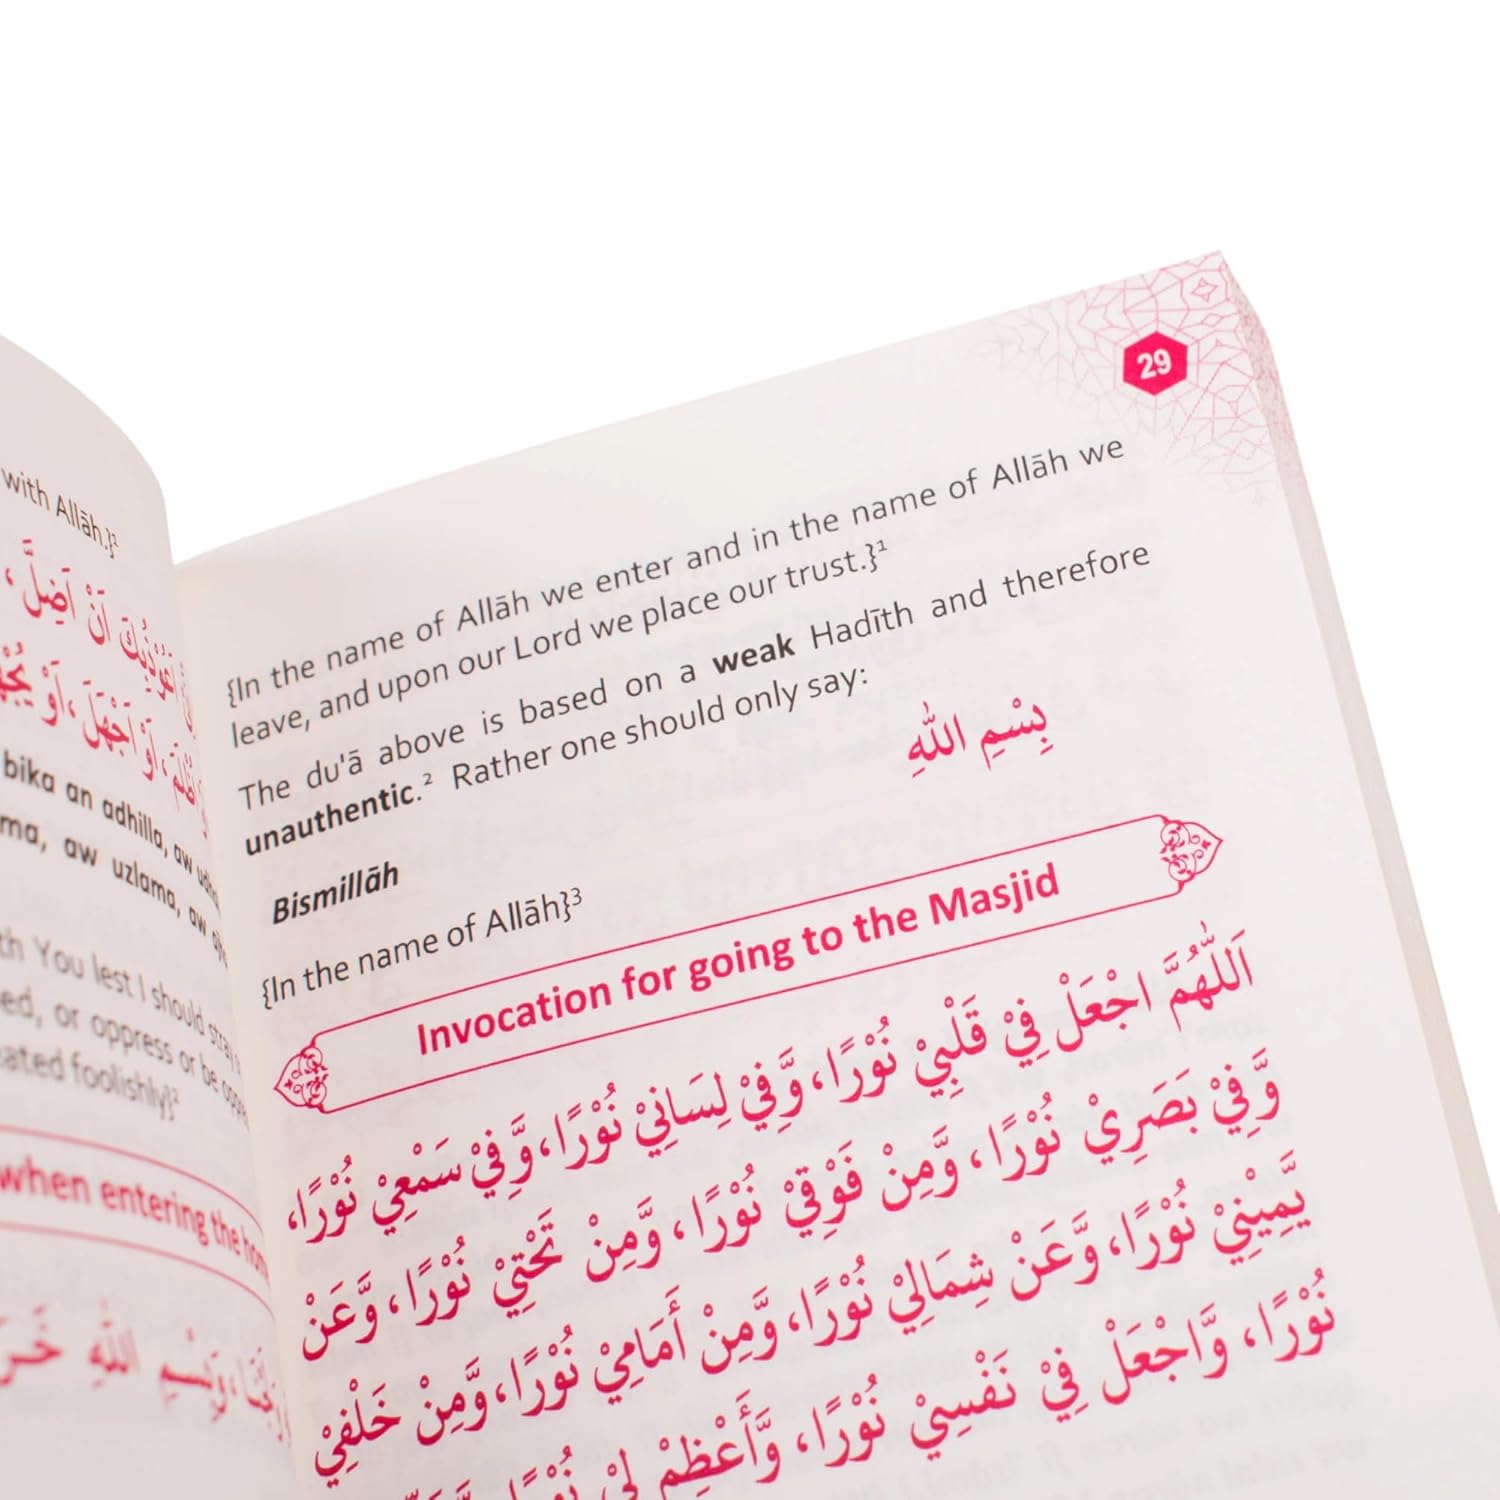 with Allāh.}²
أَعُوْذُبِكَ أَنْ أَضِلَّ،
bika an adhilla, aw
ma, aw uzlama, aw
th You lest I should stray
ed, or oppress or be
eated foolishly}²
when entering the
وَبِسْمِ اللهِ
29
{In the name of Allāh we enter and in the name of Allāh we
leave, and upon our Lord we place our trust.}¹
The du'ā above is based on a weak Hadīth and therefore
unauthentic.² Rather one should only say:
بِسْمِ اللهِ
Bismillāh
{In the name of Allāh}³
Invocation for going to the Masjid
اَللّٰهُمَّ اجْعَلْ فِيْ قَلْبِيْ نُوْرًا، وَّفِيْ لِسَانِيْ نُوْرًا، وَّفِيْ سَمْعِيْ نُوْرًا،
وَّفِيْ بَصَرِيْ نُوْرًا، وَّمِنْ فَوْقِيْ نُوْرًا، وَّمِنْ تَحْتِيْ نُوْرًا، وَّعَنْ
يَّمِيْنِيْ نُوْرًا، وَّعَنْ شِمَالِيْ نُوْرًا، وَّمِنْ أَمَامِيْ نُوْرًا، وَّمِنْ خَلْفِيْ
نُوْرًا، وَّاجْعَلْ فِيْ نَفْسِيْ نُوْرًا، وَّأَعْظِمْ لِيْ نُوْرًا،